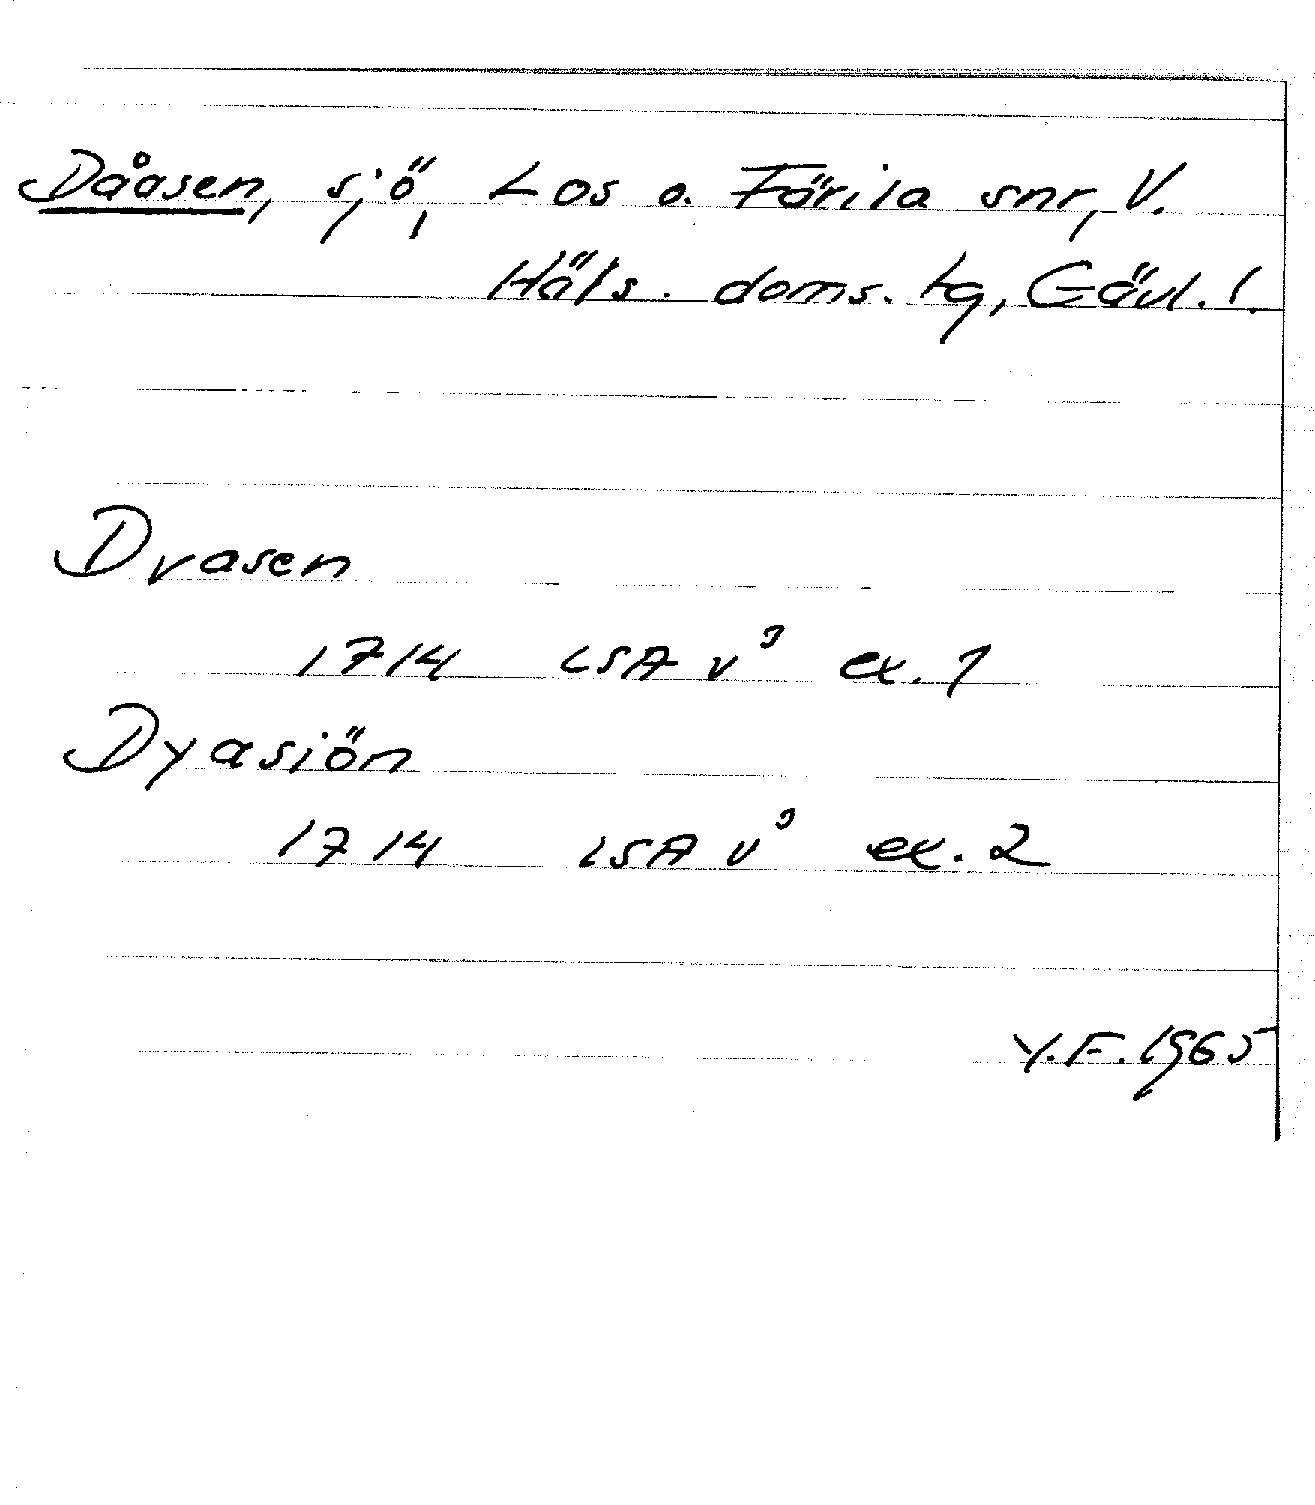 Dåasen, sjö, Los o. Färila snr, V.
Häls. doms. tg, Gävl. l.
Dvasen
1714 LSA v³ ex. 1
Dyasiön
1714 LSA v³ ex. 2
Y.F. 1965